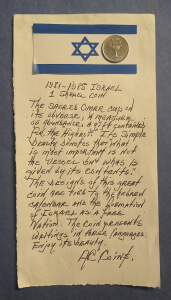 1981-1985 ISRAEL
1 SHEKEL COIN
THE SACRED OMER CUP ON
ITS OBVERSE, A MEASURE
OF ABUNDANCE, A GIFT CONTAINED
FOR THE HIGHEST. ITS SIMPLE
BEAUTY DENOTES THAT WHAT
IS MOST IMPORTANT IS NOT
THE VESSEL BUT WHAT IS
GIVEN BY ITS CONTENTS."
THE DESIGNS OF THIS GREAT
COIN ARE TIED TO THE HEBREW
CALENDAR AND THE FORMATION
OF ISRAEL AS A FREE
NATION. THE COIN PRESENTS
WRITINGS IN THREE LANGUAGES.
ENJOY ITS BEAUTY.
COINS